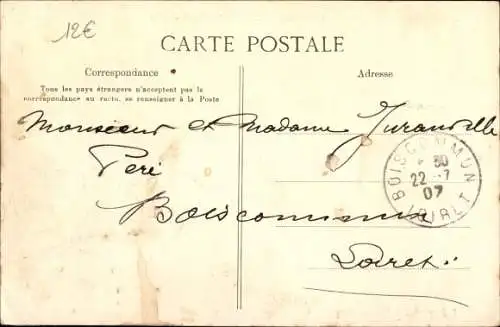 12€
CARTE POSTALE
Correspondance
Adresse
Tous les pays étrangers n'acceptent pas la
correspondance au recto, se renseigner à la Poste
Monsieur et Madame Juranville
Peré
Boiscommun
Loiret
BOISCOMMUN
30
22 -7
07
LOIRET